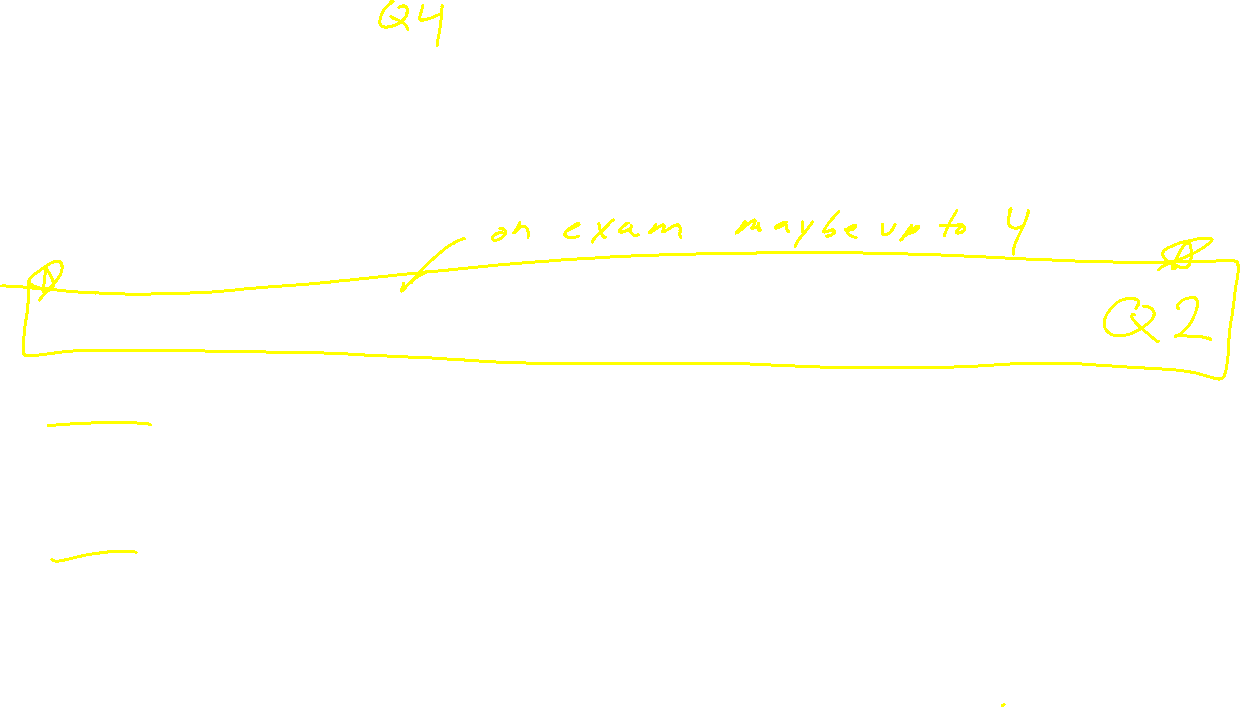 Q4
on exam maybe up to 4
Q2